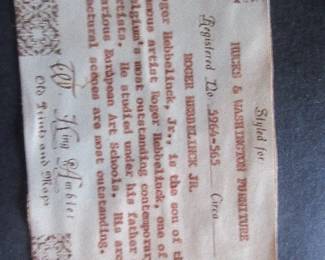 Styled for
HUCKS & WASHINGTON FURNITURE
Registered No. 5964-565 Circa
ROGER HEBBELINCK JR.
Roger Hebbelinck, Jr., is the son of th
famous artist Roger Hebbelinck, one of
Belgium's most outstanding contemporary
artists. He studied under his father
various European Art Schools. His arc
tectural scenes are most outstanding.
King Ambler
Old Prints and Maps